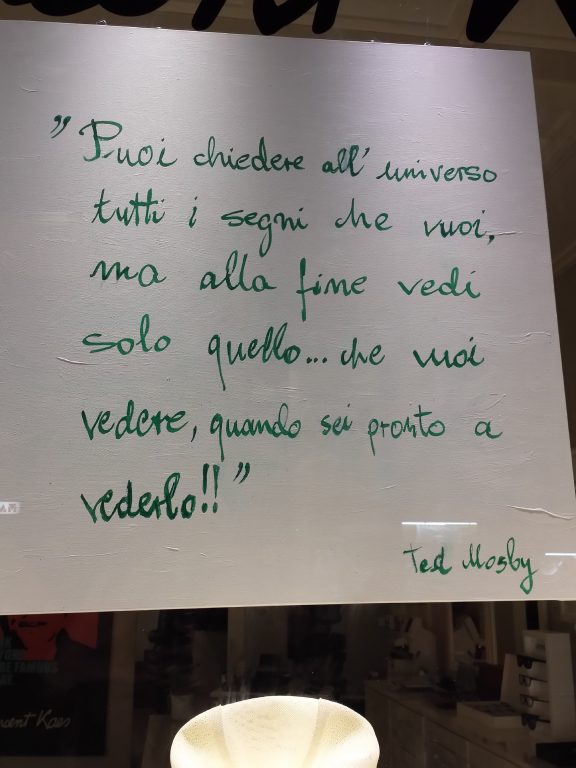 " Puoi chiedere all' universo
tutti i segni che vuoi,
ma alla fine vedi
solo quello... che vuoi
vedere, quando sei pronto a
vederlo!! "
Ted Mosby